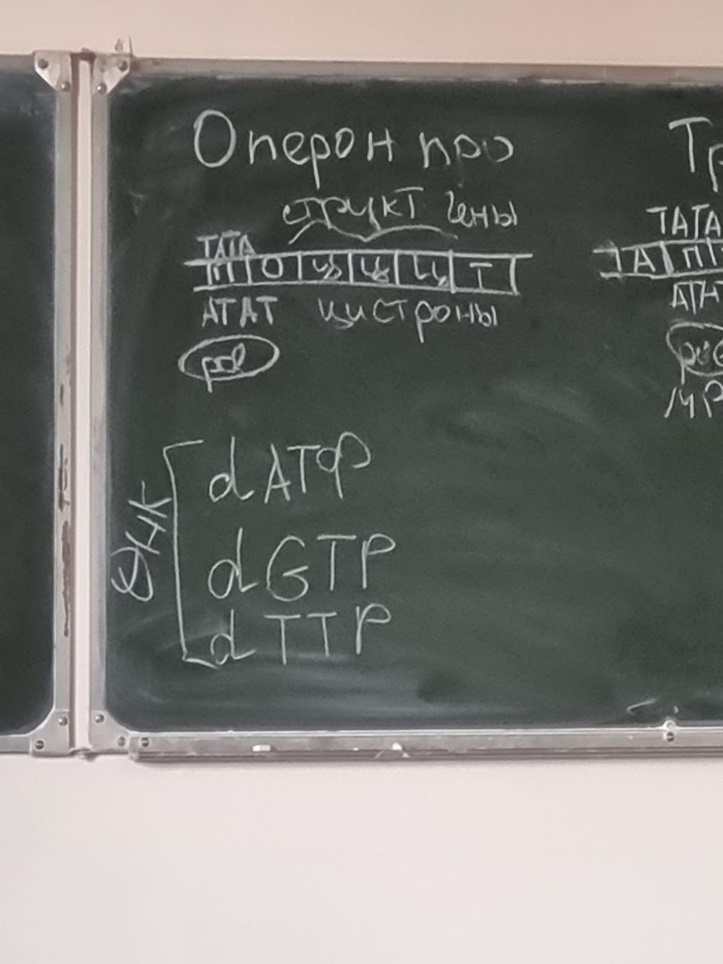 Оперон про
структ гены
ТАТА
П О Ц Ц Ц Т
АТАТ цистроны
pol
ДНК
dАТФ
dGTP
dTTP
Тр
ТАТА
ТА П
АТН